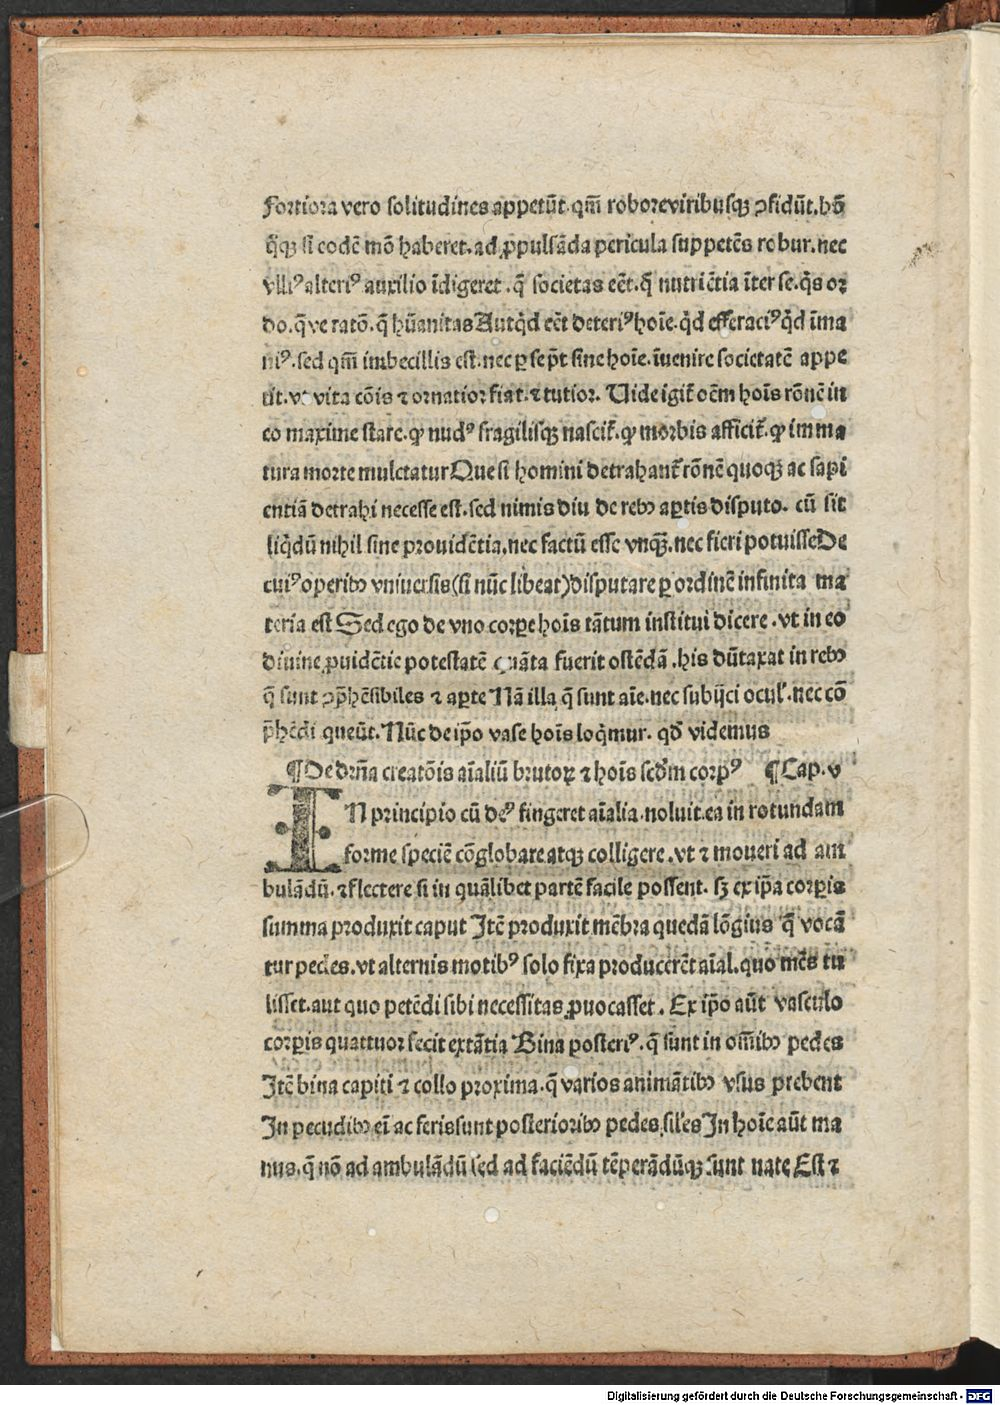 Fortiora vero solitudines appetūt. qm̄ robore viribusqȝ ꝯfidūt. hō
q̄qȝ si eodē mō haberet. ad ꝓpulsāda pericula suppetēs robur. nec
vlliꝰ alteriꝰ auxilio īdigeret. q̄ societas eēt. q̄ nutriētia īter se. q̄s or
do. q̄ve ratō. q̄ hūanitas Aut qͥd eēt deteriꝰ hoīe. qͥd efferaciꝰ qͥd īma
niꝰ. sed qm̄ imbecillis est. nec ꝑ se pt̄ sine hoīe. īuenire societatē appe
tit. vt vita cōis ⁊ ornatior fiat. ⁊ tutior. Uides igit̄ oēm hoīs rōnē in
eo maxime stare. ꝙ nudꝰ fragilisqȝ nascit̄. ꝙ morbis afficit̄. ꝙ imma
tura morte mulctatur Que si homini detrahant̄ rōnē quoqȝ ac sapi
entiā detrahi necesse est. sed nimis diu de rebꝰ aꝑtis disputo. cū sit
liqͥdū nihil sine prouidētia. nec factū esse vnqȝ. nec fieri potuisse De
cuiꝰ operibꝰ vniuersis (si nūc libeat) disputare ꝑ ordinē infinita ma
teria est Sed ego de vno corꝑe hoīs tātum institui dicere. vt in eo
diuine ꝓuidētie potestatē quāta fuerit ostēdā. his dūtaxat in rebꝰ
q̄ sunt ꝯp̄hēsibiles ⁊ aꝑte Nā illa q̄ sunt aīe. nec subijci oculꝭ. nec cō
p̄hēdi queūt. Nūc de ip̄o vase hoīs loqͥmur. qđ videmus
¶De dr̄na creatōis aīaliū brutoꝝ ⁊ hoīs scđm corpꝰ ¶Cap. v
IN principio cū deꝰ fingeret aīalia. noluit. ea in rotundam
forme speciē cōglobare atqȝ colligere. vt ⁊ moueri ad am
bulādū. ⁊ flectere si in quālibet partē facile possent. sȝ ex ip̄a corꝑis
summa produxit caput Itē produxit mēbra quedā lōgius q̄ vocā
tur pedes. vt alternis motibꝰ solo fixa producerēt aīal. quo mēs tu
lisset. aut quo petēdi sibi necessitas ꝓuocasset. Ex ip̄o aūt vasculo
corꝑis quattuor fecit extātia Bina posteriꝰ. q̄ sunt in om̄ibꝰ pedes
Itē bina capiti ⁊ collo proxima. q̄ varios animātibꝰ vsus prebent
In pecudibꝰ eī ac feris sunt posterioribꝰ pedes sil̄es In hoīe aūt ma
nus. q̄ nō ad ambulādū sed ad faciēdū tēperādūqȝ sunt nate Est ⁊
Digitalisierung gefördert durch die Deutsche Forschungsgemeinschaft - DFG